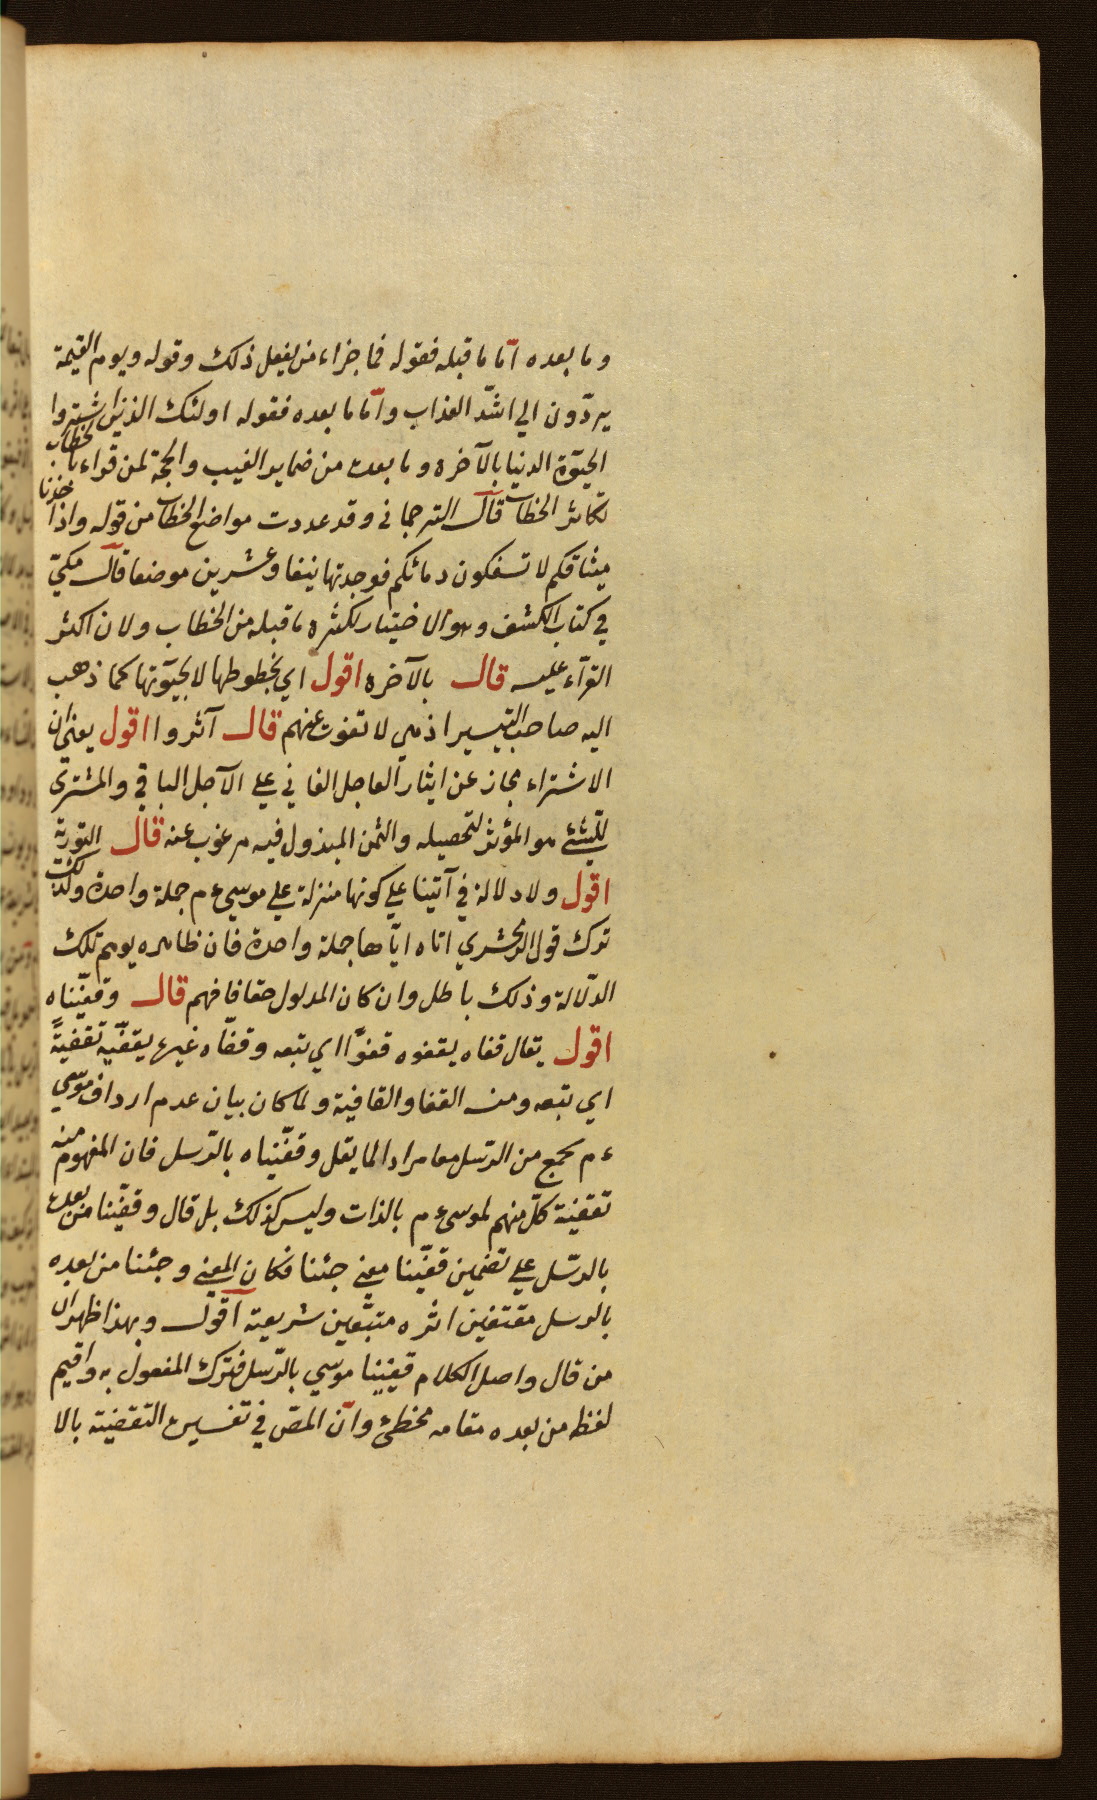 وما بعده امّا ما قبله فقوله فما جزاء من يفعل ذلك وقوله ويوم القيمة
يردّون الي اشدّ العذاب وامّا ما بعده فقوله اولئك الذين اشتروا
الحيوٰة الدنيا بالآخره وما بعده من ضماير الغيب والحجة لمن قراء بالخطاب
تكاثر الخطاب قال الترجماني وقد عددت مواضع الخطاب من قوله واذ اخذنا
ميثاقكم لا تسفكون دمائكم فوجدتها نيفا وعشرين موضعا قال مكيّ
في كتاب الكشف وهو الاختيار لكثره ما قبله من الخطاب ولان اكثر
القرآء عليه قال بالآخره اقول اي بحظوظها لا بحيوتها كما ذهب
اليه صاحب التيسير اذ هي لا تفوت عنهم قال آثروا اقول يعني ان
الاشتراء مجاز عن ايثار العاجل الفاني علي الآجل الباقي والمشتري
للشئ هو المؤثر لتحصيله والثمن المبذول فيه مرغوب عنه قال التورية
اقول ولا دلالة في آتينا علي كونها منزلة علي موسي ءم جملة واحدة ولذلك
ترك قول الزمخشري اتاه ايّاها جملة واحدة فان ظاهره يوهم تلك
الدّلالة وذلك باطل وان كان المدلول حقا فافهم قال وقفّيناه
اقول يقال قفاه يقفوه قفوًّا اي تبعه وقفّاه غيره يقفّيه تقفيةً
اي تبعه ومنه القفا والقافية ولما كان بيان عدم ارداف موسي
ءم بجمع من الرّسل معا مرادا لم يقل وقفّيناه بالرّسل فان المفهوم منه
تقفية كلّ منهم لموسي ءم بالذات وليس كذلك بل قال وقفّينا من بعده
بالرسّل علي تضمين قفّينا معني جئنا فكان المعني وجئنا من بعده
بالرسل مقتفين اثره متبّعين شريعته اقول وبهذا ظهر ان
من قال واصل الكلام قفينا موسي بالرّسل فترك المفعول به واقيم
لفظ من بعده مقامه مخطئ وانّ المصّ في تفسيره التقفية بالا